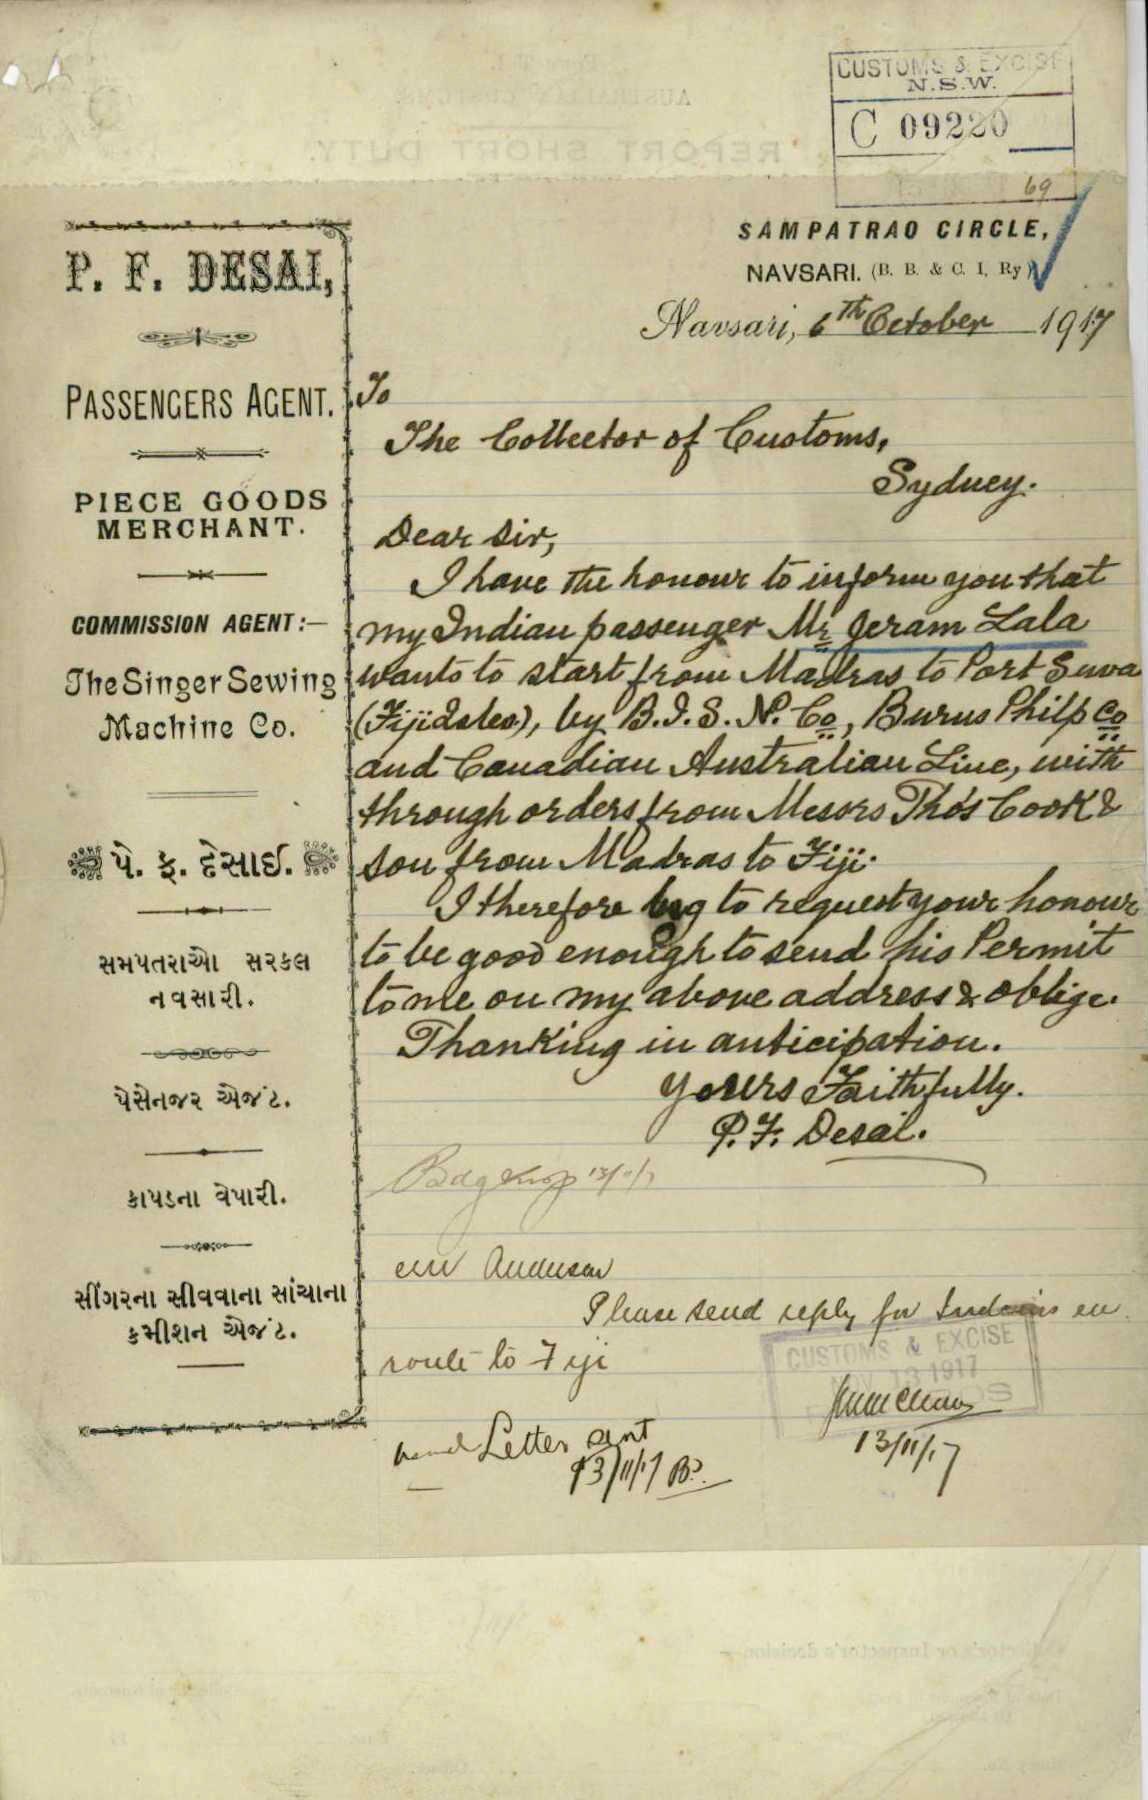 CUSTOMS & EXCISE
N.S.W.
C 09220
69
P. F. DESAI,
PASSENGERS AGENT.
PIECE GOODS
MERCHANT.
COMMISSION AGENT:—
The Singer Sewing
Machine Co.
પે. ફ. દેસાઈ.
સમપતરાઓ સરકલ
નવસારી.
પેસેનજર એજંટ.
કાપડના વેપારી.
સીંગરના સીવવાના સાંચાના
કમીશન એજંટ.
SAMPATRAO CIRCLE,
NAVSARI. (B. B. & C. I, Ry)
Navsari, 6th October 1917
To
The Collector of Customs,
Sydney.
Dear Sir,
I have the honour to inform you that
my Indian passenger Mr Jeram Lala
wants to start from Madras to Port Suva
(Fiji Isles), by B.I.S.N. Co, Burns Philp Co
and Canadian Australian Line, with
through orders from Messrs Thos Cook &
son from Madras to Fiji.
I therefore beg to request your honour
to be good enough to send his Permit
to me on my above address & oblige.
Thanking in anticipation.
Yours Faithfully.
P. F. Desai.
13/11/17
Please send reply for Indians en
route to Fiji
CUSTOMS & EXCISE
NOV 13 1917
13/11/17
Letter sent
13/11/17